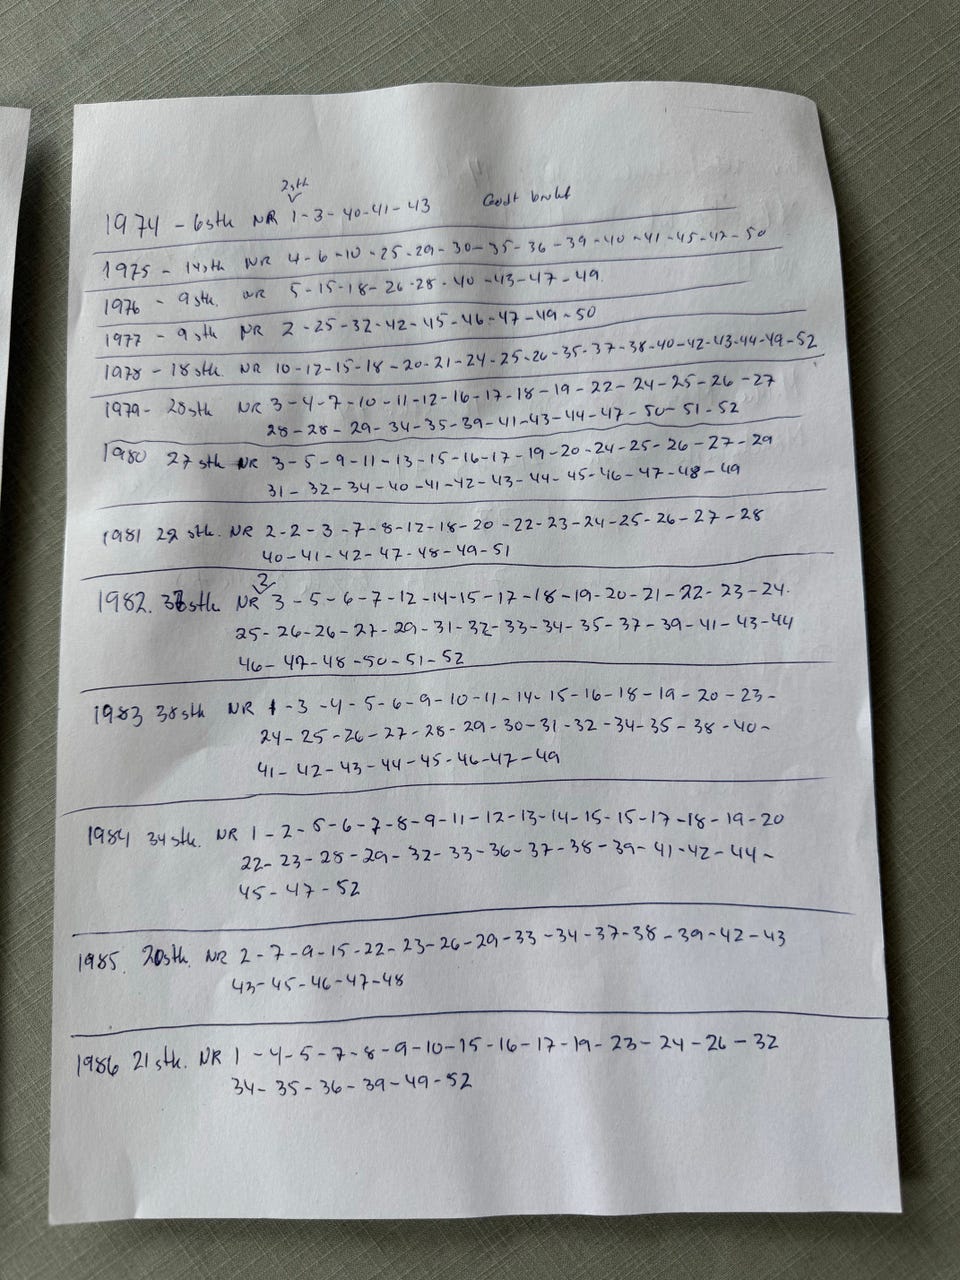 2stk
1974 - 6stk NR 1-3-40-41-43 Godt brukt
1975 - 14stk NR 4-6-10-25-29-30-35-36-39-40-41-45-47-50
1976 - 9stk. NR 5-15-18-26-28-40-43-47-49.
1977 - 9stk NR 2-25-32-42-45-46-47-49-50
1978 - 18stk. NR 10-12-15-18-20-21-24-25-26-35-37-38-40-42-43-44-49-52
1979 - 28stk NR 3-4-7-10-11-12-16-17-18-19-22-24-25-26-27
28-28-29-34-35-39-41-43-44-47-50-51-52
1980 27stk NR 3-5-9-11-13-15-16-17-19-20-24-25-26-27-29
31-32-34-40-41-42-43-44-45-46-47-48-49
1981 22 stk. NR 2-2-3-7-8-12-18-20-22-23-24-25-26-27-28
40-41-42-47-48-49-51
2
1982. stk NR 3-5-6-7-12-14-15-17-18-19-20-21-22-23-24.
25-26-26-27-29-31-32-33-34-35-37-39-41-43-44
46-47-48-50-51-52
1983 38stk NR 1-3-4-5-6-9-10-11-14-15-16-18-19-20-23-
24-25-26-27-28-29-30-31-32-34-35-38-40-
41-42-43-44-45-46-47-49
1984 34stk. NR 1-2-5-6-7-8-9-11-12-13-14-15-15-17-18-19-20
22-23-28-29-32-33-36-37-38-39-41-42-44-
45-47-52
1985. 20stk. NR 2-7-9-15-22-23-26-29-33-34-37-38-39-42-43
43-45-46-47-48
1986 21stk. NR 1-4-5-7-8-9-10-15-16-17-19-23-24-26-32
34-35-36-39-49-52